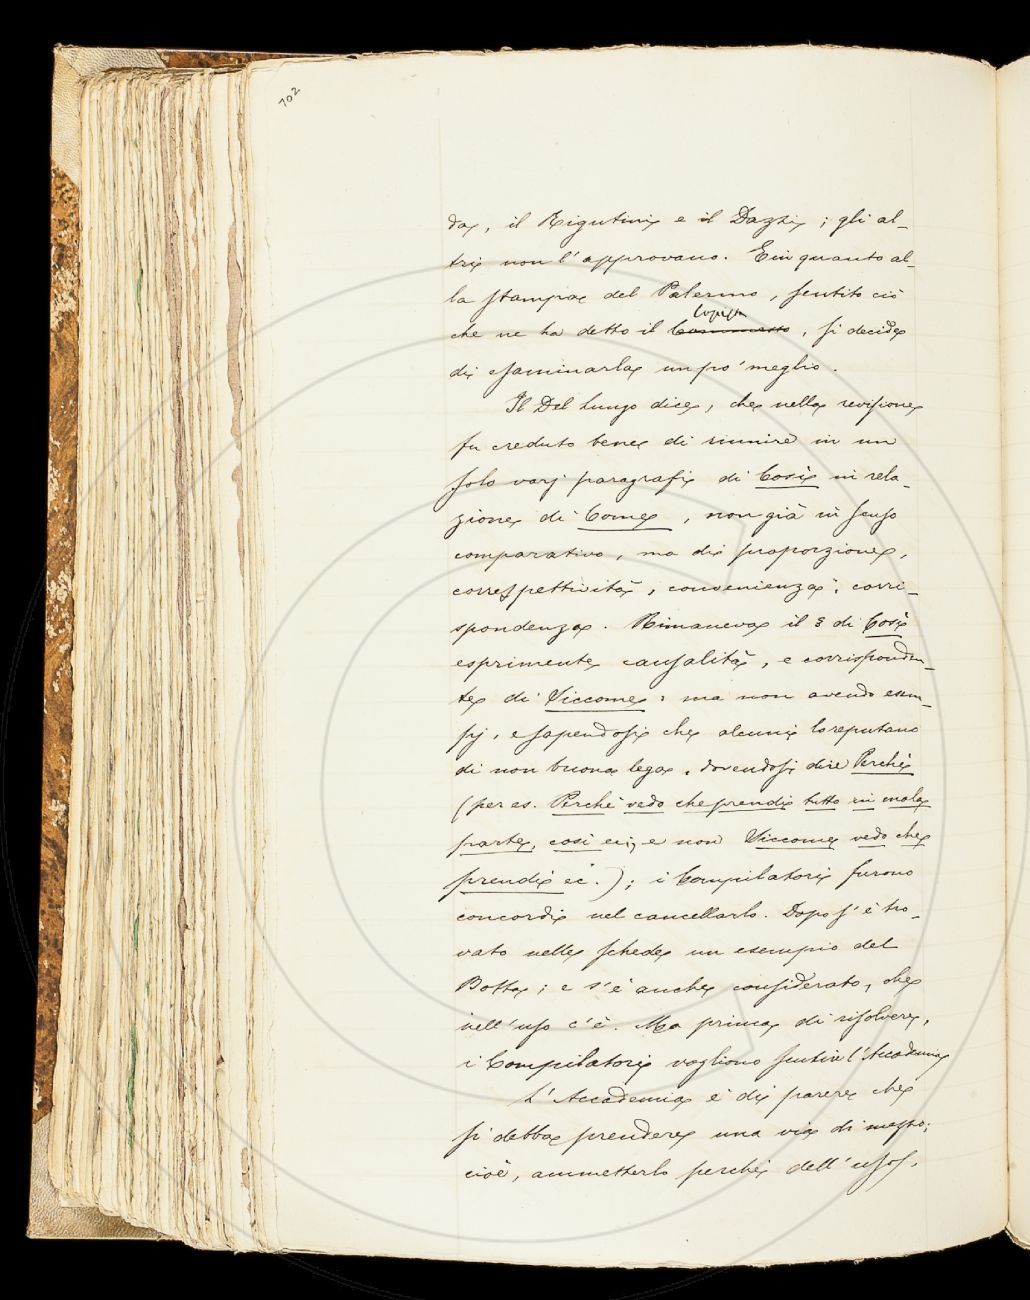 102
da, il Rigutini e il Dazzi; gli al-
tri non l'approvano. E in quanto al-
la stampa del Palermo, sentito ciò
Copista
che ne ha detto il Commesso, si decide
di esaminarla un po' meglio.
Il Del Lungo dice, che nella revisione
fu creduto bene di riunire in un
solo varj paragrafi di Così in rela-
zione di Come, non già in senso
comparativo, ma di proporzione,
correspettività, convenienza, corri-
spondenza. Rimaneva il § di Così
esprimente causalità, e corrisponden-
te di Siccome: ma non avendo esem-
pj, e sapendosi che alcuni lo reputano
di non buona lega, dovendosi dire Perchè
(per es. Perchè vedo che prendi tutto in mala
parte, così ec; e non Siccome vedo che
prendi ec.); i Compilatori furono
concordi nel cancellarlo. Dopo s'è tro-
vato nelle schede un esempio del
Botta; e s'è anche considerato, che
nell'uso c'è. Ma prima di risolvere,
i Compilatori vogliono sentire l'Accademia
L'Accademia è di parere che
si debba prendere una via di mezzo;
cioè, ammetterlo perchè dell'uso,